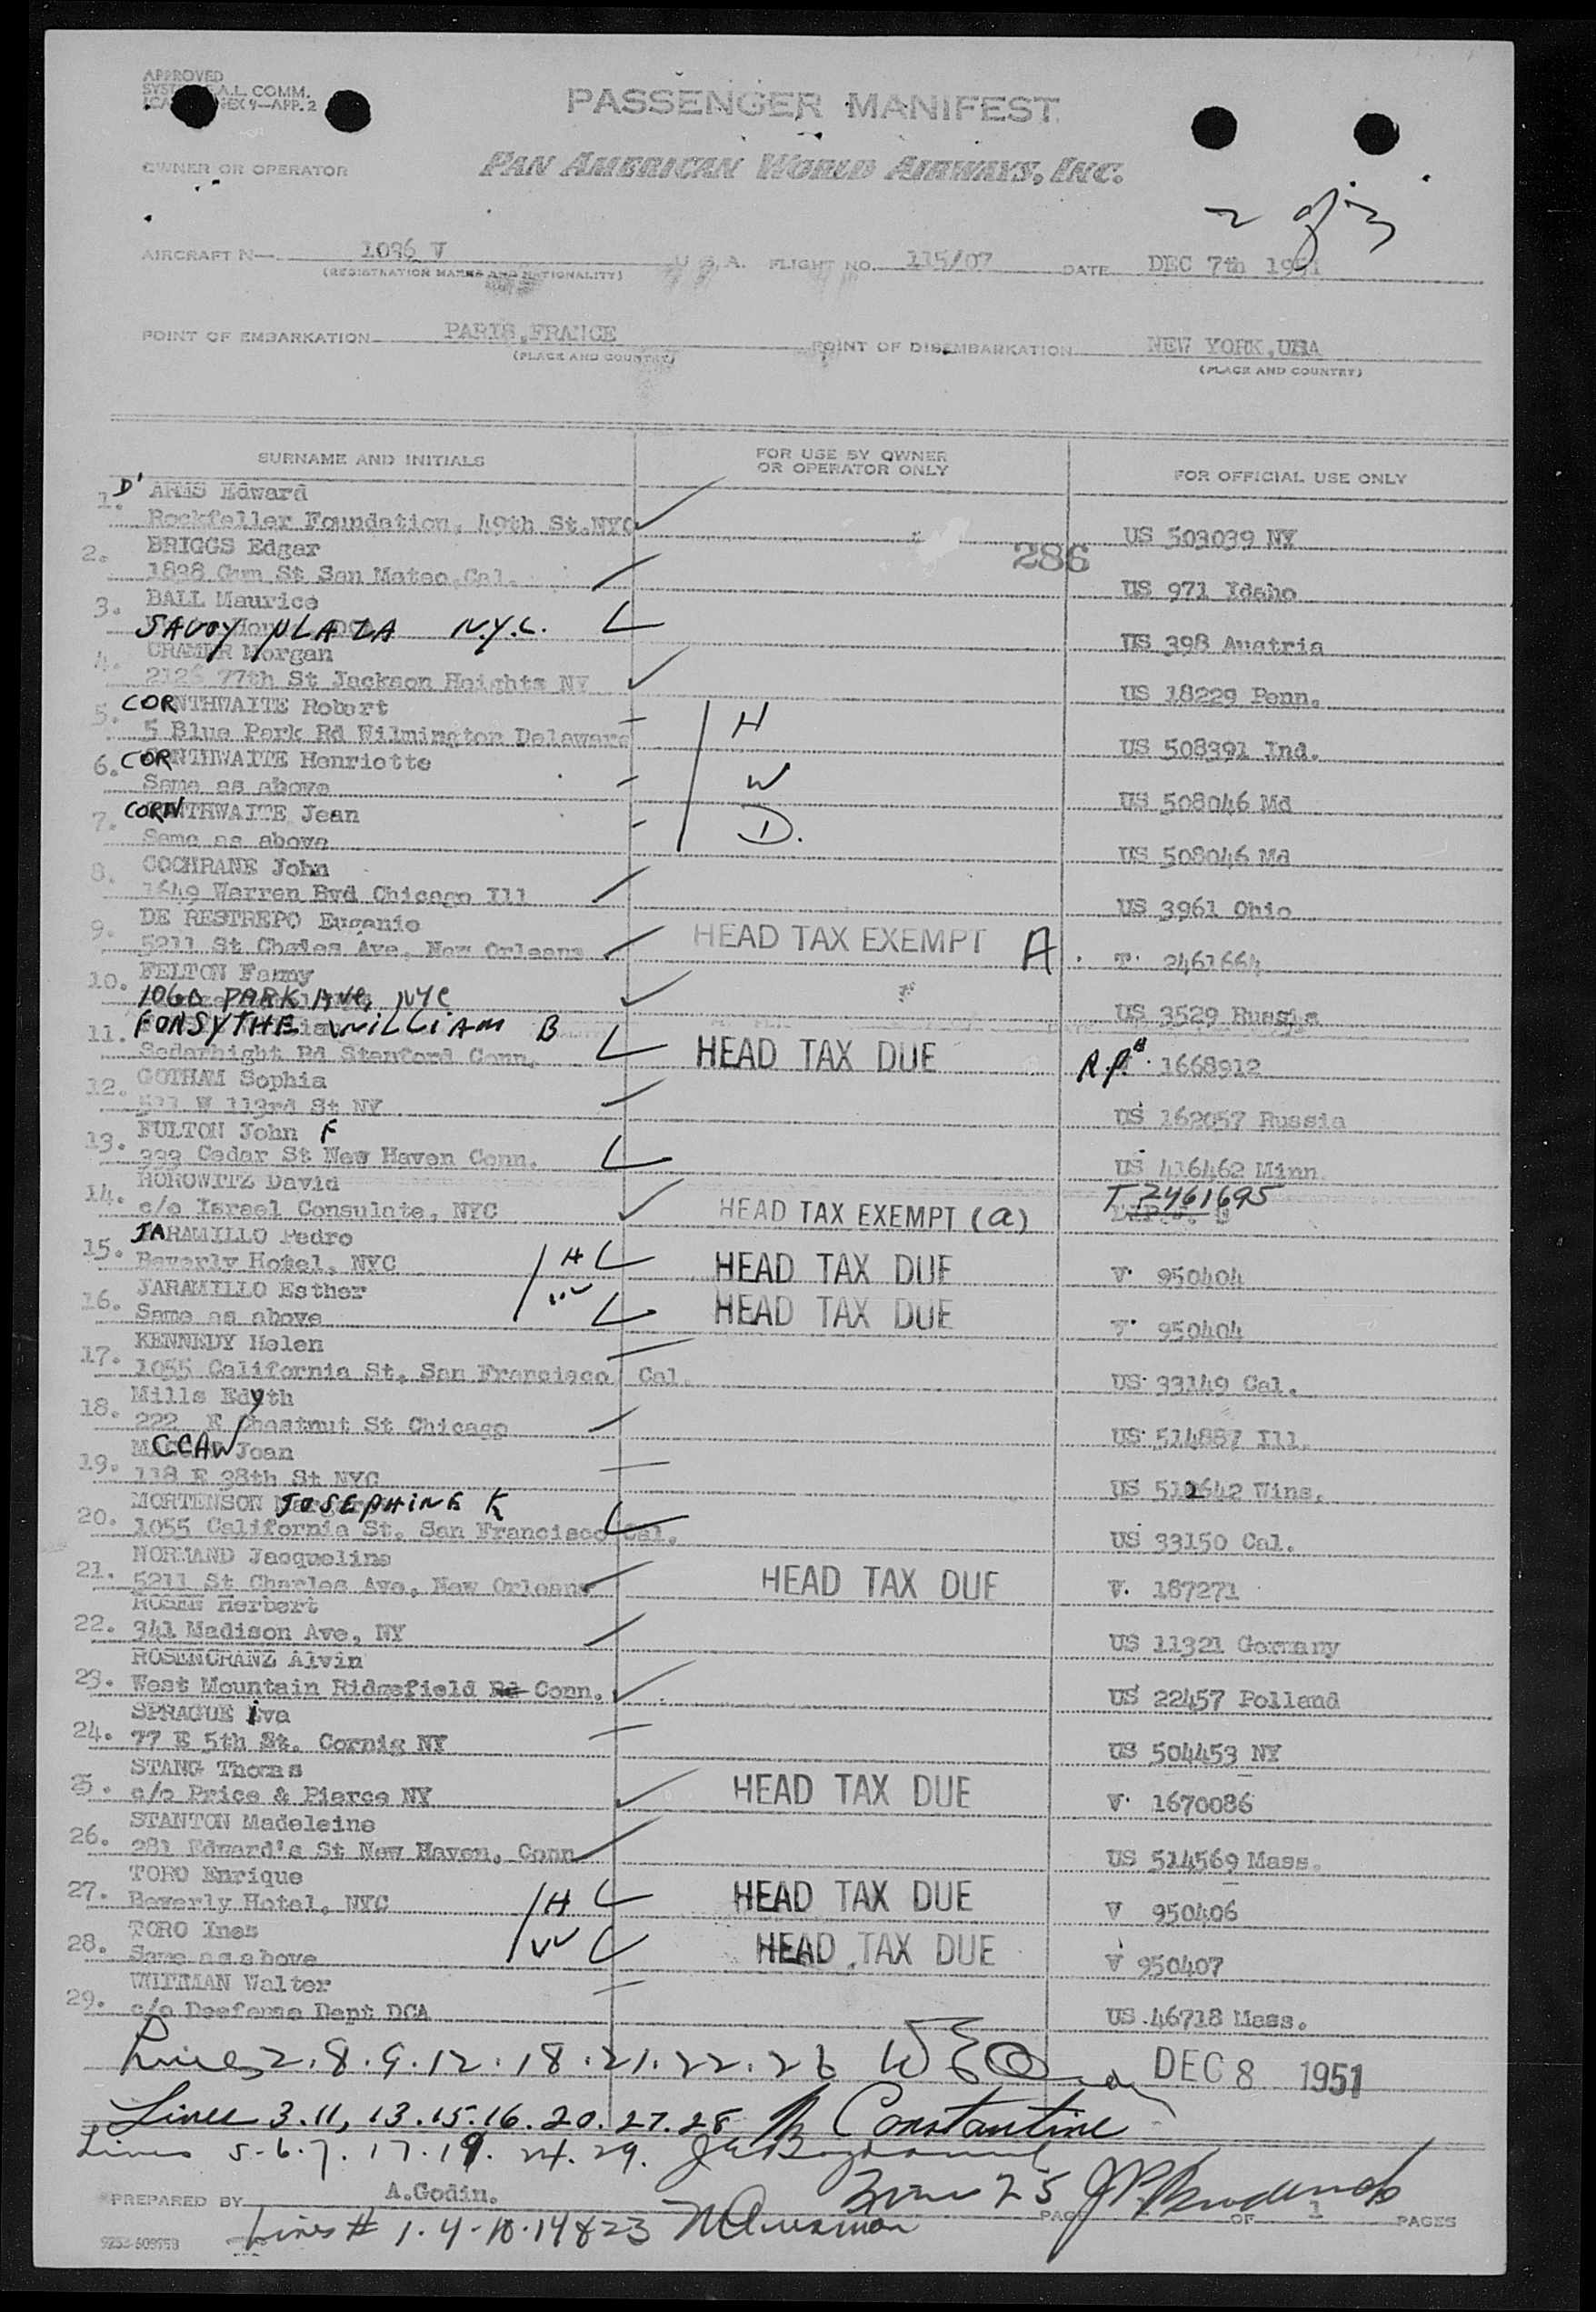 APPROVED
A.L. COMM.
PASSENGER MANIFEST
OWNER OR OPERATOR PAN AMERICAN WORLD AIRWAYS, INC.
2 of 3
AIRCRAFT N— 1036 V U.S.A. FLIGHT NO. 115/07 DATE DEC 7th 1951
(REGISTRATION MARKS AND NATIONALITY)
POINT OF EMBARKATION PARIS,FRANCE POINT OF DISEMBARKATION NEW YORK,USA
(PLACE AND COUNTRY) (PLACE AND COUNTRY)
SURNAME AND INITIALS FOR USE BY OWNER OR OPERATOR ONLY FOR OFFICIAL USE ONLY
1. D' ARMS Edward
Rockfeller Foundation, 49th St.NYC US 503039 NY
286
2. BRIGGS Edgar
1838 Gum St San Mateo,Cal. US 971 Idaho
3. BALL Maurice
SAVOY PLAZA N.Y.C. US 398 Austria
4. CRAMER Morgan
2126 77th St Jackson Heights NY US 18229 Penn.
5. CORNTHWAITE Robert
5 Blue Park Rd Wilmington Delaware H US 508391 Ind.
6. CORNTHWAITE Henriette
Same as above W US 508046 Md
7. CORNTHWAITE Jean
Same as above D. US 508046 Md
8. COCHRANE John
1649 Warren Bvd Chicago Ill US 3961 Ohio
9. DE RESTREPO Eugenio
5211 St Chales Ave, New Orleans HEAD TAX EXEMPT A T. 2461664
10. FELTON Fanny
1060 PARK AVE, NYC US 3529 Russia
11. FORSYTHE WILLIAM B
Sedarhight Rd Stanford Conn. HEAD TAX DUE R.P. 1668912
12. GOTHAM Sophia
511 W 113rd St NY US 162057 Russia
13. FULTON John F
333 Cedar St New Haven Conn. US 416462 Minn.
14. HOROWITZ David
c/o Israel Consulate, NYC HEAD TAX EXEMPT (a) T 2461695
15. JARAMILLO Pedro
Beverly Hotel, NYC H HEAD TAX DUE V. 950404
16. JARAMILLO Esther
Same as above W HEAD TAX DUE V. 950404
17. KENNEDY Helen
1055 California St, San Francisco Cal. US 33149 Cal.
18. Mills Edyth
222 E Chestnut St Chicago US 514887 Ill.
19. MCCAW Joan
118 E 38th St NYC US 512642 Wins.
20. MORTENSON JOSEPHINE K
1055 California St. San Francisco Cal. US 33150 Cal.
21. NORMAND Jacqueline
5211 St Charles Ave, New Orleans HEAD TAX DUE V. 187271
22. ROSEN Herbert
341 Madison Ave, NY US 11321 Germany
23. ROSENCRANZ Alvin
West Mountain Ridgefield Rd Conn. US 22457 Polland
24. SPRAGUE Iva
77 E 5th St. Cornig NY US 504453 NY
25. STANG Thomas
c/o Price & Pierce NY HEAD TAX DUE V. 1670086
26. STANTON Madeleine
281 Edward's St New Haven, Conn US 514569 Mass.
27. TORO Enrique
Beverly Hotel, NYC H HEAD TAX DUE V 950406
28. TORO Ines
Same as above W HEAD TAX DUE V 950407
29. WHITMAN Walter
c/o Deefense Dept DCA US 46718 Mass.
Lines 2.8.9.12.18.21.22.26 DEC 8 1951
Lines 3.11, 13.15.16.20.27.28 Constantine
Lines 5-6-7.17.19.24.29.
Line 25
PREPARED BY A.Godin. PAGE OF 1 PAGES
Lines # 1.4-10-14 & 23